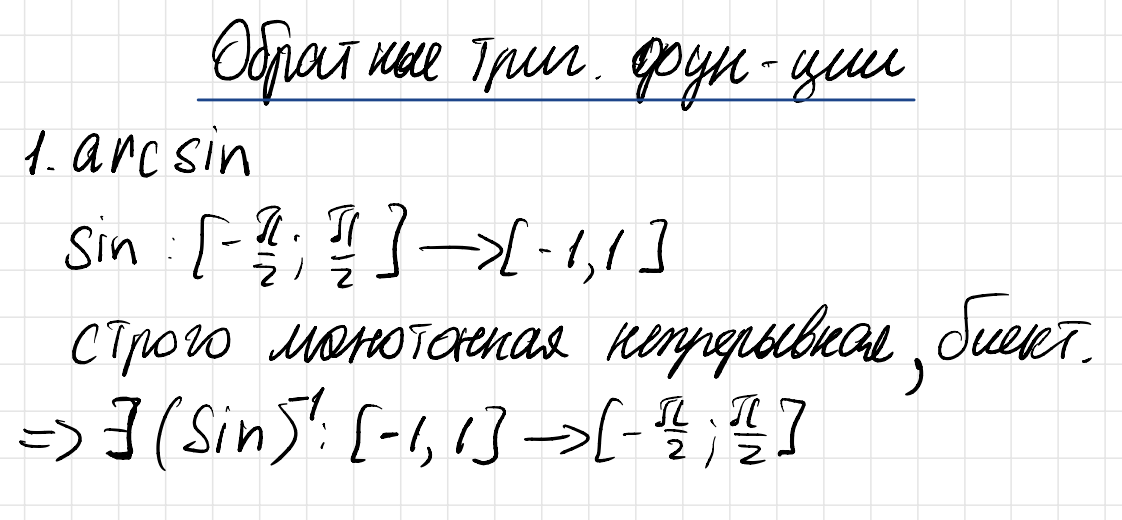 Обратные триг. фун-ции
1. arcsin
sin : [-π/2; π/2] → [-1, 1]
строго монотонная непрерывная, биект.
=> ∃ (sin)⁻¹: [-1, 1] → [-π/2; π/2]